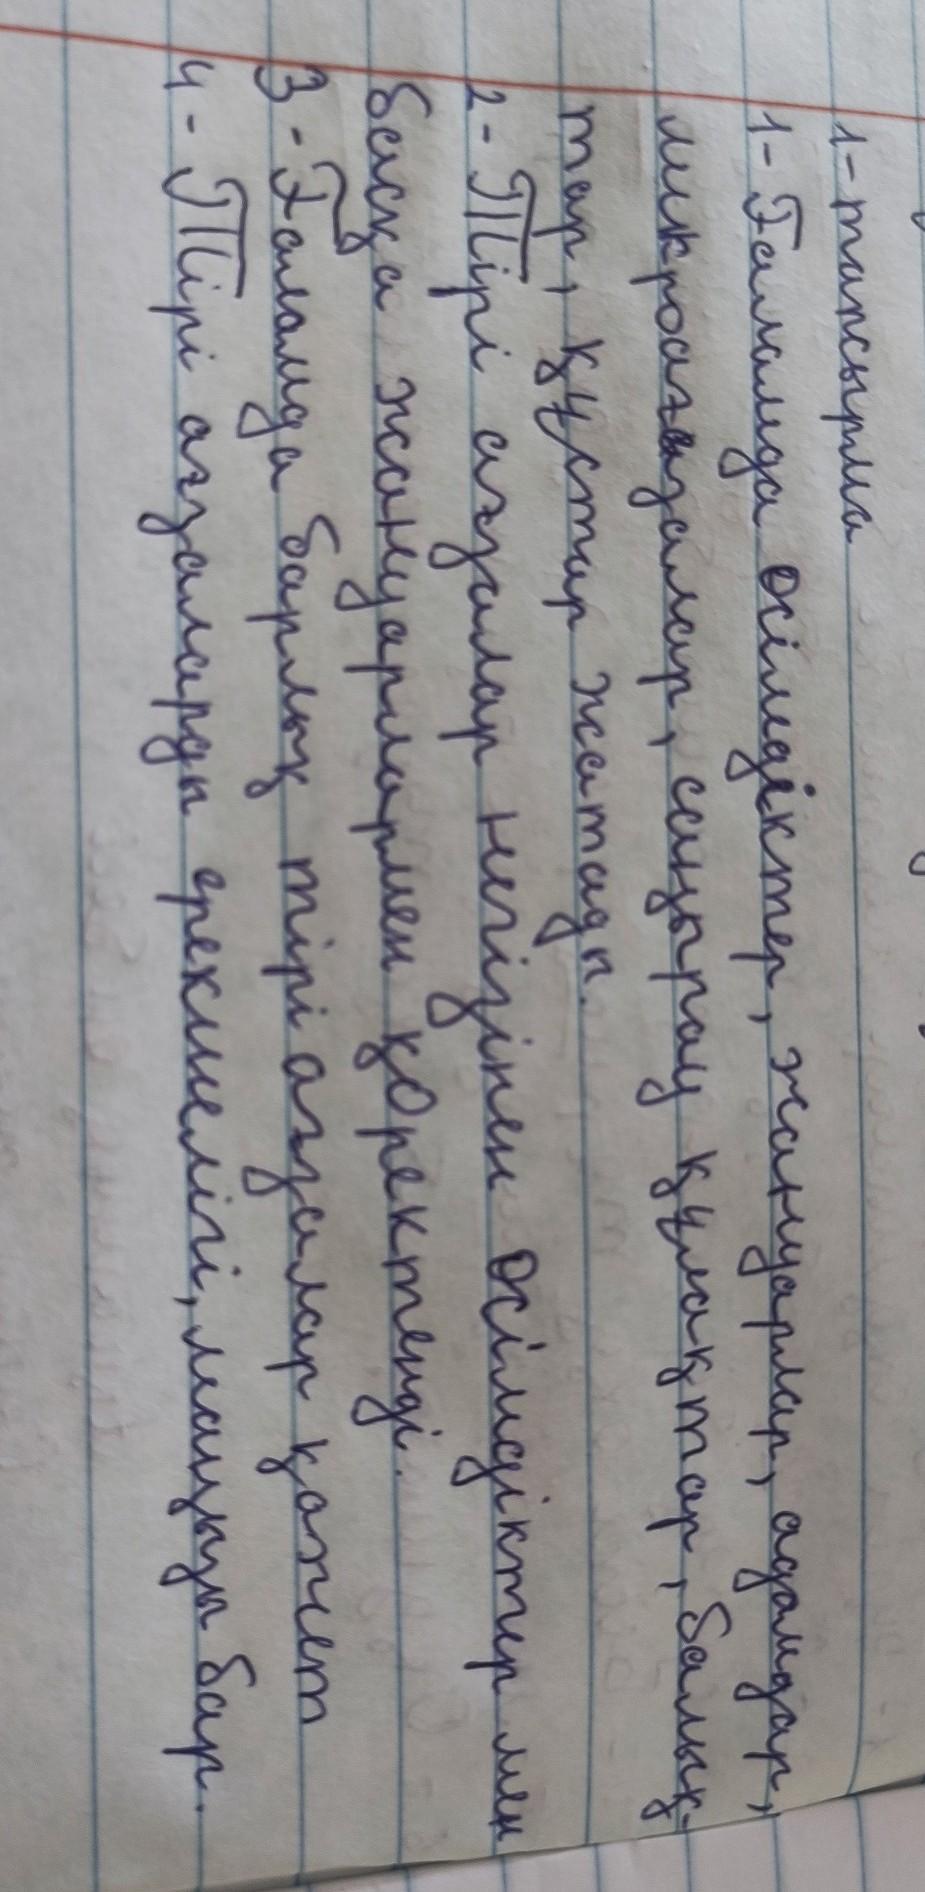 1-тапсырма
1- Ғаламда өсімдіктер, жануарлар, адамдар,
микроағзалар, саңырау құлақтар, балық-
тар, құстар жатады.
2- Тірі ағзалар негізінен өсімдіктер мен
басқа жануарлармен қоректенді.
3- Ғаламда барлық тірі ағзалар қажет
4- Тірі ағзаларды ерекшелігі, маңызы бар.